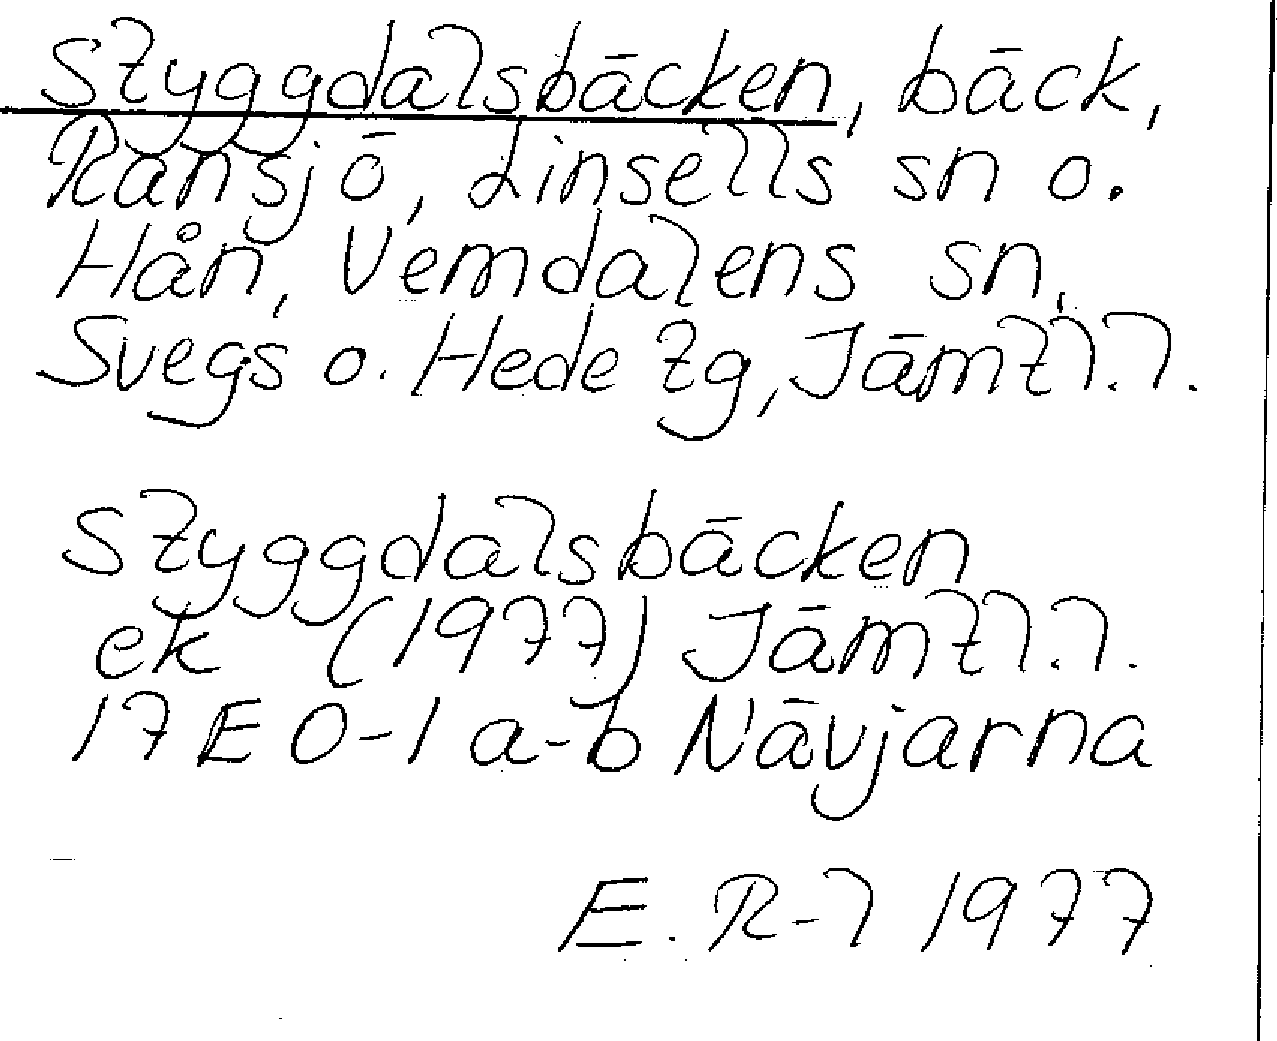 Styggdalsbäcken, bäck,
Ransjö, Linsells sn o.
Hån, Vemdalens sn,
Svegs o. Hede tg, Jämtl.l.
Styggdalsbäcken
ek (1977) Jämtl.l.
17E 0-1 a-b Nävjarna
E. R-l 1977